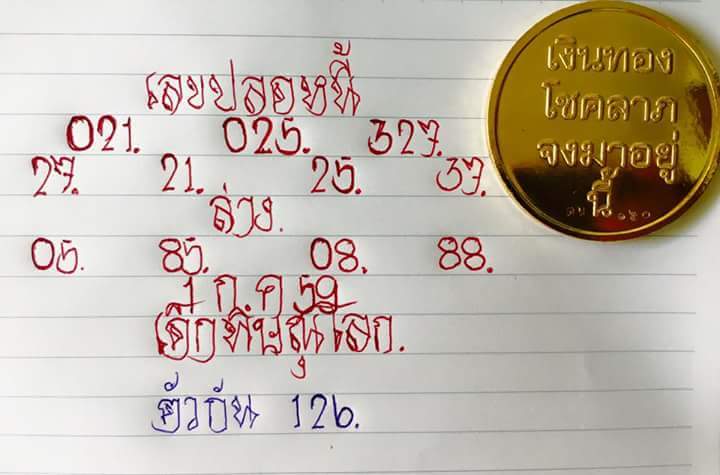 เลขปลดหนี้
021. 025. 327.
27. 21. 25. 37.
ล่าง.
05. 85. 08. 88.
1 ก.ค 59
ตัวกัน 126.
เงินทอง
โชคลาภ
จงมาอยู่
นี้